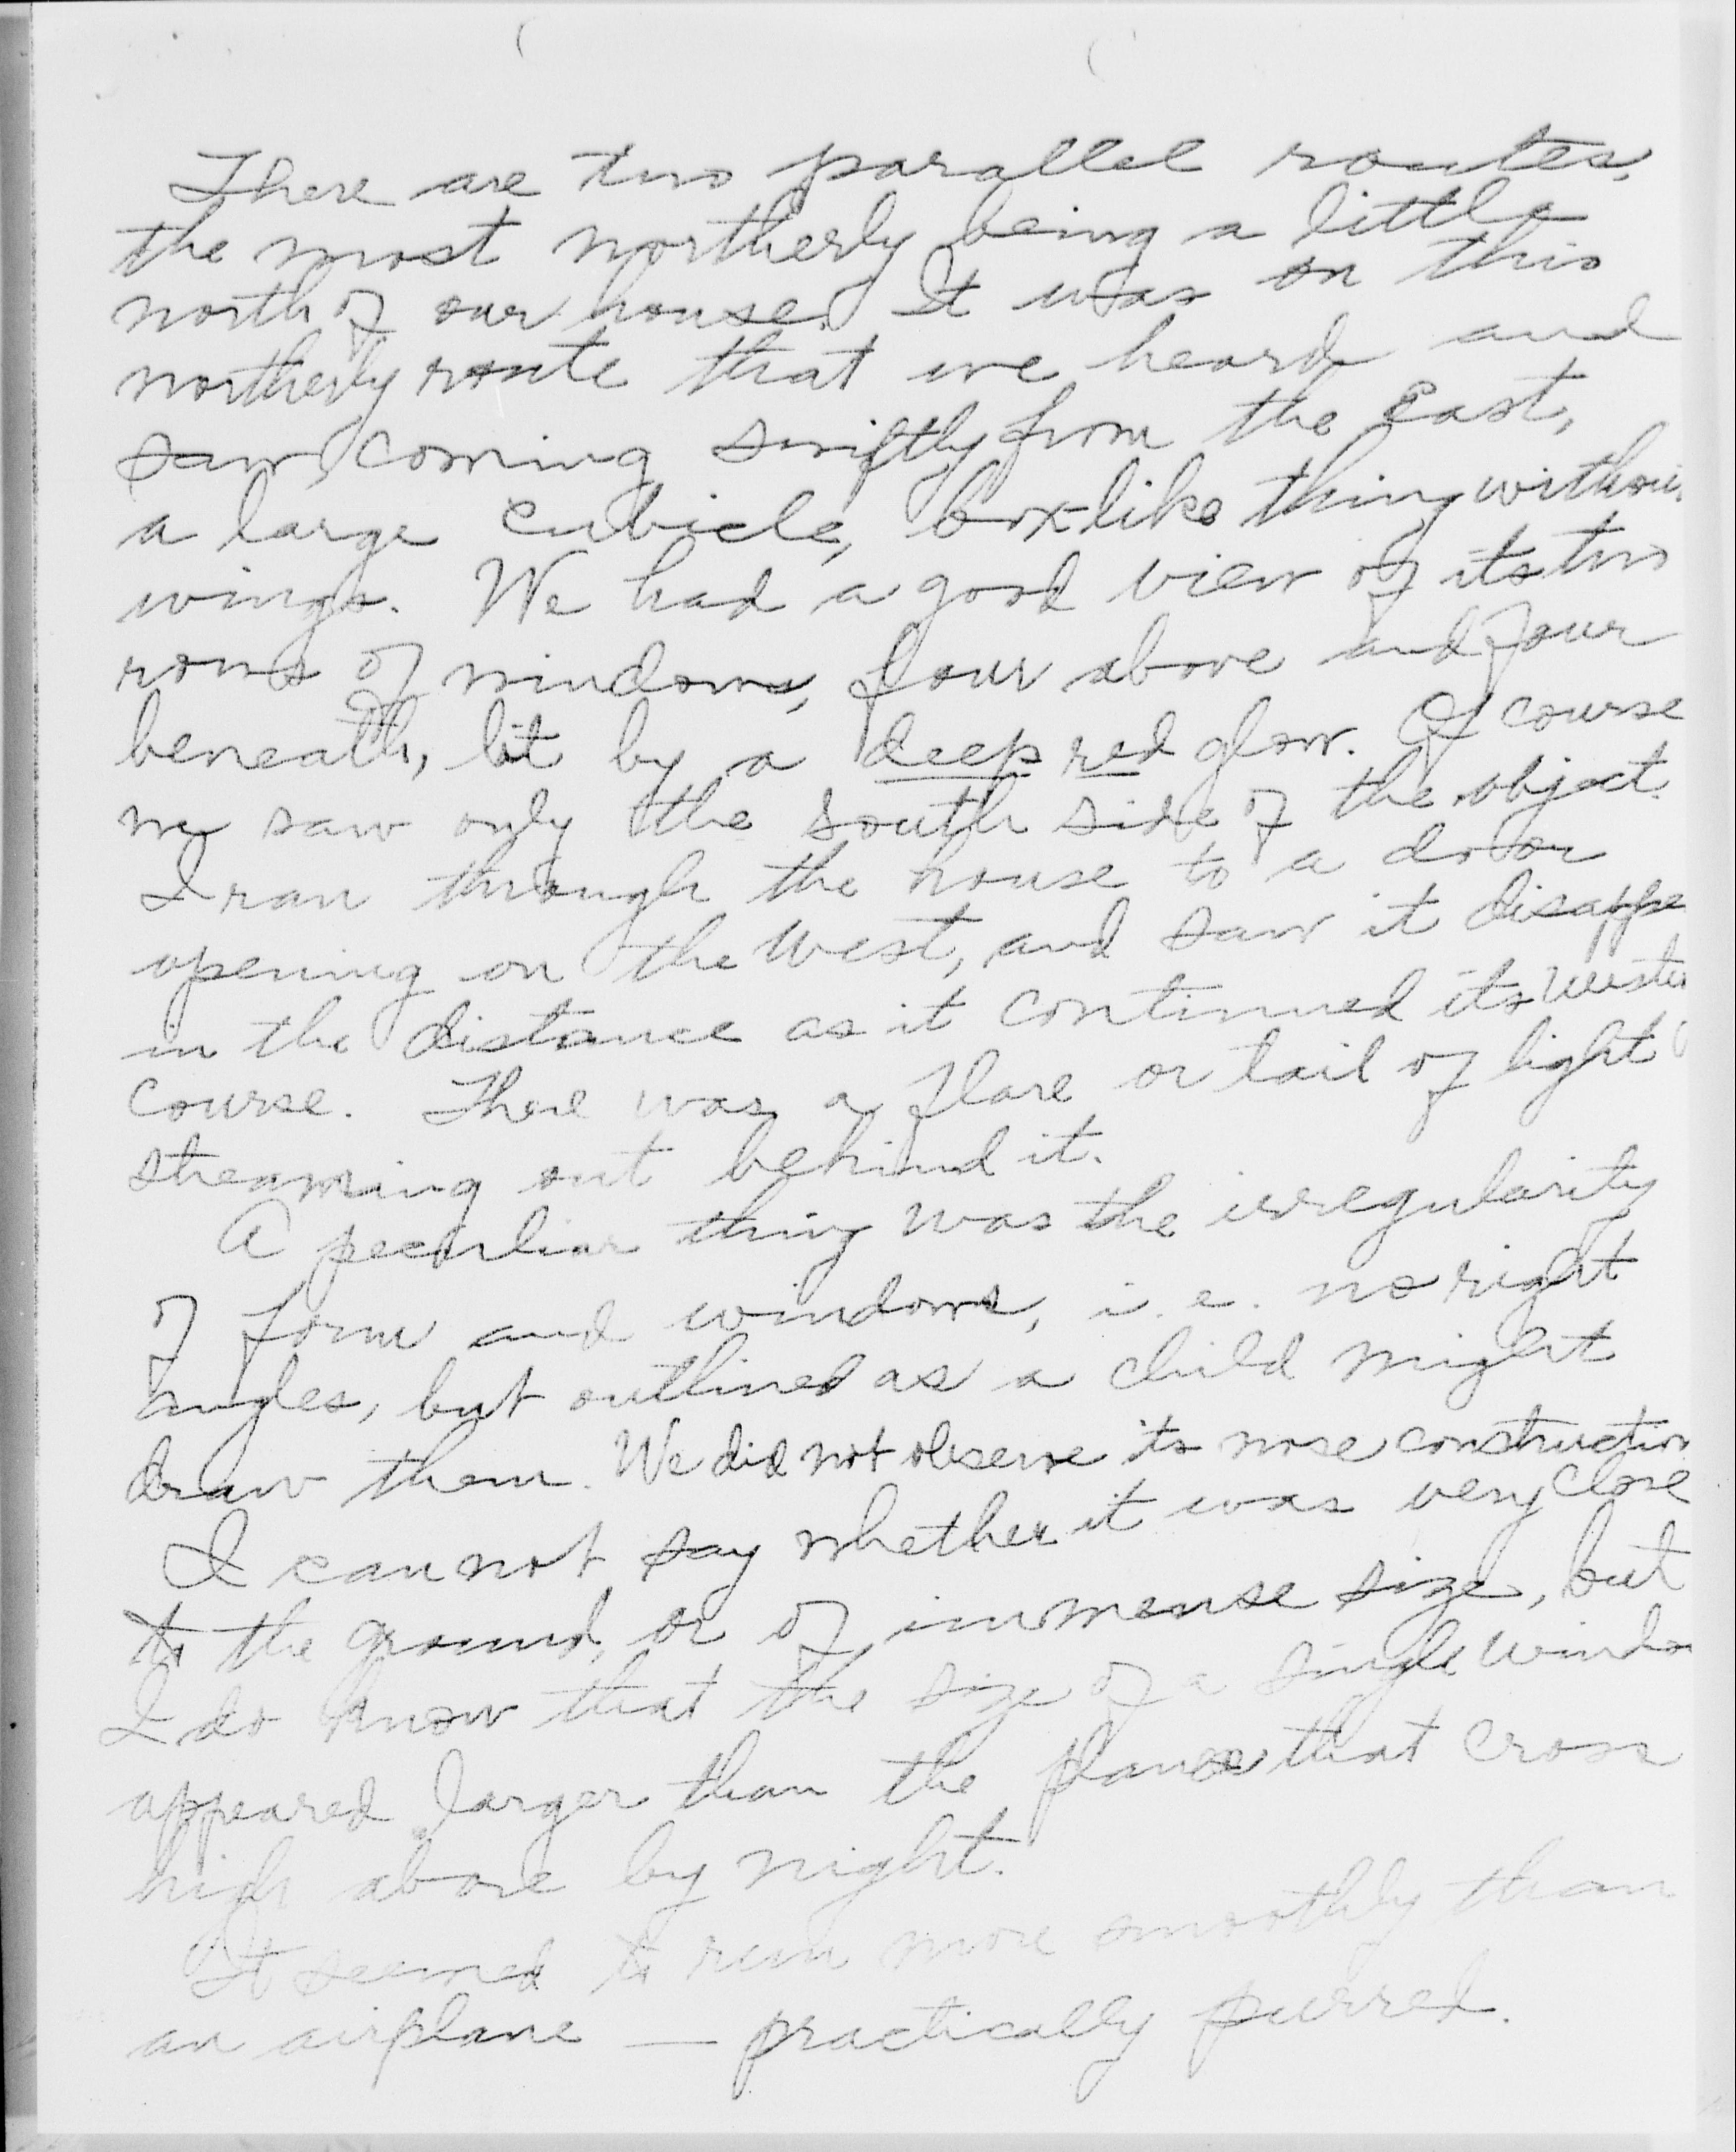 There are two parallel routes,
the most northerly being a little
north of our house. It was on this
northerly route that we heard and
saw, coming swiftly from the East,
a large cubicle, box-like thing withou
wings. We had a good view of its two
rows of windows, four above and four
beneath, lit by a deep red glow. Of course
we saw only the south side of the object.
I ran through the house to a door
opening on the west, and saw it disappe
in the distance as it continued its weste
course. There was a flare or tail of light
streaming out behind it.
A peculiar thing was the irregularity
of form and windows, i.e. no right
angles, but outlined as a child might
draw them. We did not observe its nose construction
I cannot say whether it was very close
to the ground, or of immense size, but
I do know that the size of a single windo
appeared larger than the planes that cross
high above by night.
It seemed to run more smoothly than
an airplane — practically purred.